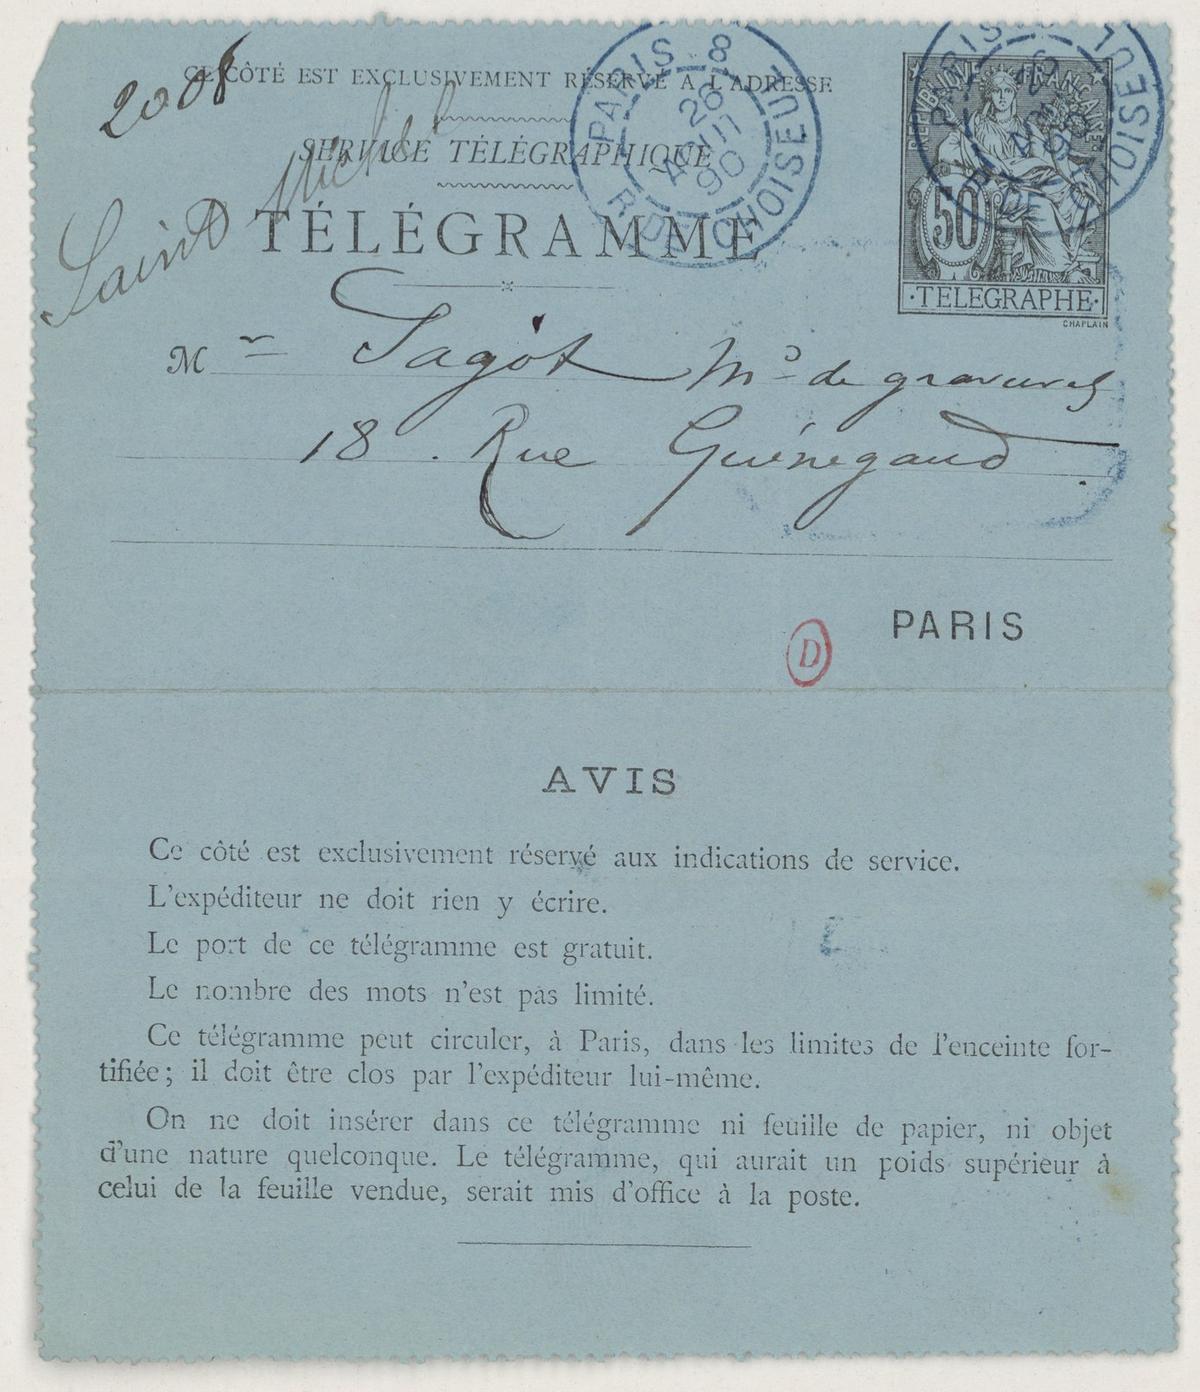 2008
CE CÔTÉ EST EXCLUSIVEMENT RÉSERVÉ A L'ADRESSE
SERVICE TÉLÉGRAPHIQUE
Saint Michel
TÉLÉGRAMME
PARIS 8
26
90
R. DE CHOISEUL
RÉPUBLIQUE FRANÇAISE
50
·TELEGRAPHE·
CHAPLAIN
PARIS
90
R. DE CHOISEUL
Mr Sagot Md de gravures
18. Rue Guénegaud
PARIS
D
AVIS
Ce côté est exclusivement réservé aux indications de service.
L'expéditeur ne doit rien y écrire.
Le port de ce télégramme est gratuit.
Le nombre des mots n'est pas limité.
Ce télégramme peut circuler, à Paris, dans les limites de l'enceinte for-
tifiée; il doit être clos par l'expéditeur lui-même.
On ne doit insérer dans ce télégramme ni feuille de papier, ni objet
d'une nature quelconque. Le télégramme, qui aurait un poids supérieur à
celui de la feuille vendue, serait mis d'office à la poste.